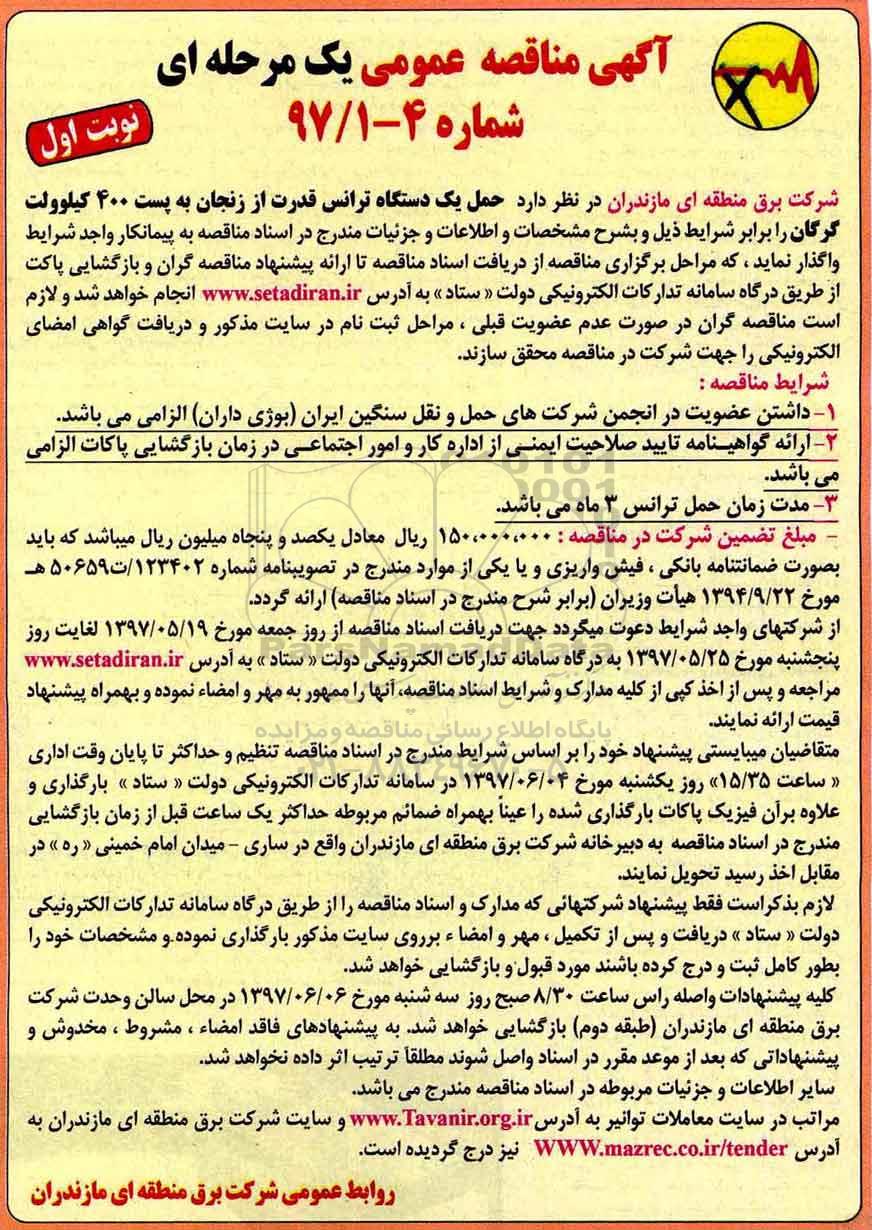 آگهی مناقصه عمومی یک مرحله ای
شماره ۴-۹۷/۱
نوبت اول
شرکت برق منطقه ای مازندران در نظر دارد حمل یک دستگاه ترانس قدرت از زنجان به پست ۴۰۰ کیلوولت
گرگان را برابر شرایط ذیل و بشرح مشخصات و اطلاعات و جزئیات مندرج در اسناد مناقصه به پیمانکار واجد شرایط
واگذار نماید ، که مراحل برگزاری مناقصه از دریافت اسناد مناقصه تا ارائه پیشنهاد مناقصه گران و بازگشایی پاکت
از طریق درگاه سامانه تدارکات الکترونیکی دولت « ستاد » به آدرس www.setadiran.ir انجام خواهد شد و لازم
است مناقصه گران در صورت عدم عضویت قبلی ، مراحل ثبت نام در سایت مذکور و دریافت گواهی امضای
الکترونیکی را جهت شرکت در مناقصه محقق سازند.
شرایط مناقصه :
۱- داشتن عضویت در انجمن شرکت های حمل و نقل سنگین ایران (بوژی داران) الزامی می باشد.
۲- ارائه گواهینامه تایید صلاحیت ایمنی از اداره کار و امور اجتماعی در زمان بازگشایی پاکات الزامی
می باشد.
۳- مدت زمان حمل ترانس ۳ ماه می باشد.
- مبلغ تضمین شرکت در مناقصه : ۱۵۰،۰۰۰،۰۰۰ ریال معادل یکصد و پنجاه میلیون ریال میباشد که باید
بصورت ضمانتنامه بانکی ، فیش واریزی و یا یکی از موارد مندرج در تصویبنامه شماره ۱۲۳۴۰۲/ت۵۰۶۵۹ هـ
مورخ ۱۳۹۴/۹/۲۲ هیأت وزیران (برابر شرح مندرج در اسناد مناقصه) ارائه گردد.
از شرکتهای واجد شرایط دعوت میگردد جهت دریافت اسناد مناقصه از روز جمعه مورخ ۱۳۹۷/۰۵/۱۹ لغایت روز
پنجشنبه مورخ ۱۳۹۷/۰۵/۲۵ به درگاه سامانه تدارکات الکترونیکی دولت « ستاد » به آدرس www.setadiran.ir
مراجعه و پس از اخذ کپی از کلیه مدارک و شرایط اسناد مناقصه، آنها را ممهور به مهر و امضاء نموده و بهمراه پیشنهاد
قیمت ارائه نمایند.
پایگاه اطلاع رسانی مناقصه و مزایده
متقاضیان میبایستی پیشنهاد خود را بر اساس شرایط مندرج در اسناد مناقصه تنظیم و حداکثر تا پایان وقت اداری
« ساعت ۱۵/۳۵» روز یکشنبه مورخ ۱۳۹۷/۰۶/۰۴ در سامانه تدارکات الکترونیکی دولت « ستاد » بارگذاری و
علاوه برآن فیزیک پاکات بارگذاری شده را عیناً بهمراه ضمائم مربوطه حداکثر یک ساعت قبل از زمان بازگشایی
مندرج در اسناد مناقصه به دبیرخانه شرکت برق منطقه ای مازندران واقع در ساری - میدان امام خمینی « ره » در
مقابل اخذ رسید تحویل نمایند.
لازم بذکراست فقط پیشنهاد شرکتهائی که مدارک و اسناد مناقصه را از طریق درگاه سامانه تدارکات الکترونیکی
دولت « ستاد » دریافت و پس از تکمیل ، مهر و امضا ء برروی سایت مذکور بارگذاری نموده و مشخصات خود را
بطور کامل ثبت و درج کرده باشند مورد قبول و بازگشایی خواهد شد.
کلیه پیشنهادات واصله راس ساعت ۸/۳۰ صبح روز سه شنبه مورخ ۱۳۹۷/۰۶/۰۶ در محل سالن وحدت شرکت
برق منطقه ای مازندران (طبقه دوم) بازگشایی خواهد شد. به پیشنهادهای فاقد امضاء ، مشروط ، مخدوش و
پیشنهاداتی که بعد از موعد مقرر در اسناد واصل شوند مطلقاً ترتیب اثر داده نخواهد شد.
سایر اطلاعات و جزئیات مربوطه در اسناد مناقصه مندرج می باشد.
مراتب در سایت معاملات توانیر به آدرس www.Tavanir.org.ir و سایت شرکت برق منطقه ای مازندران به
آدرس WWW.mazrec.co.ir/tender نیز درج گردیده است.
روابط عمومی شرکت برق منطقه ای مازندران